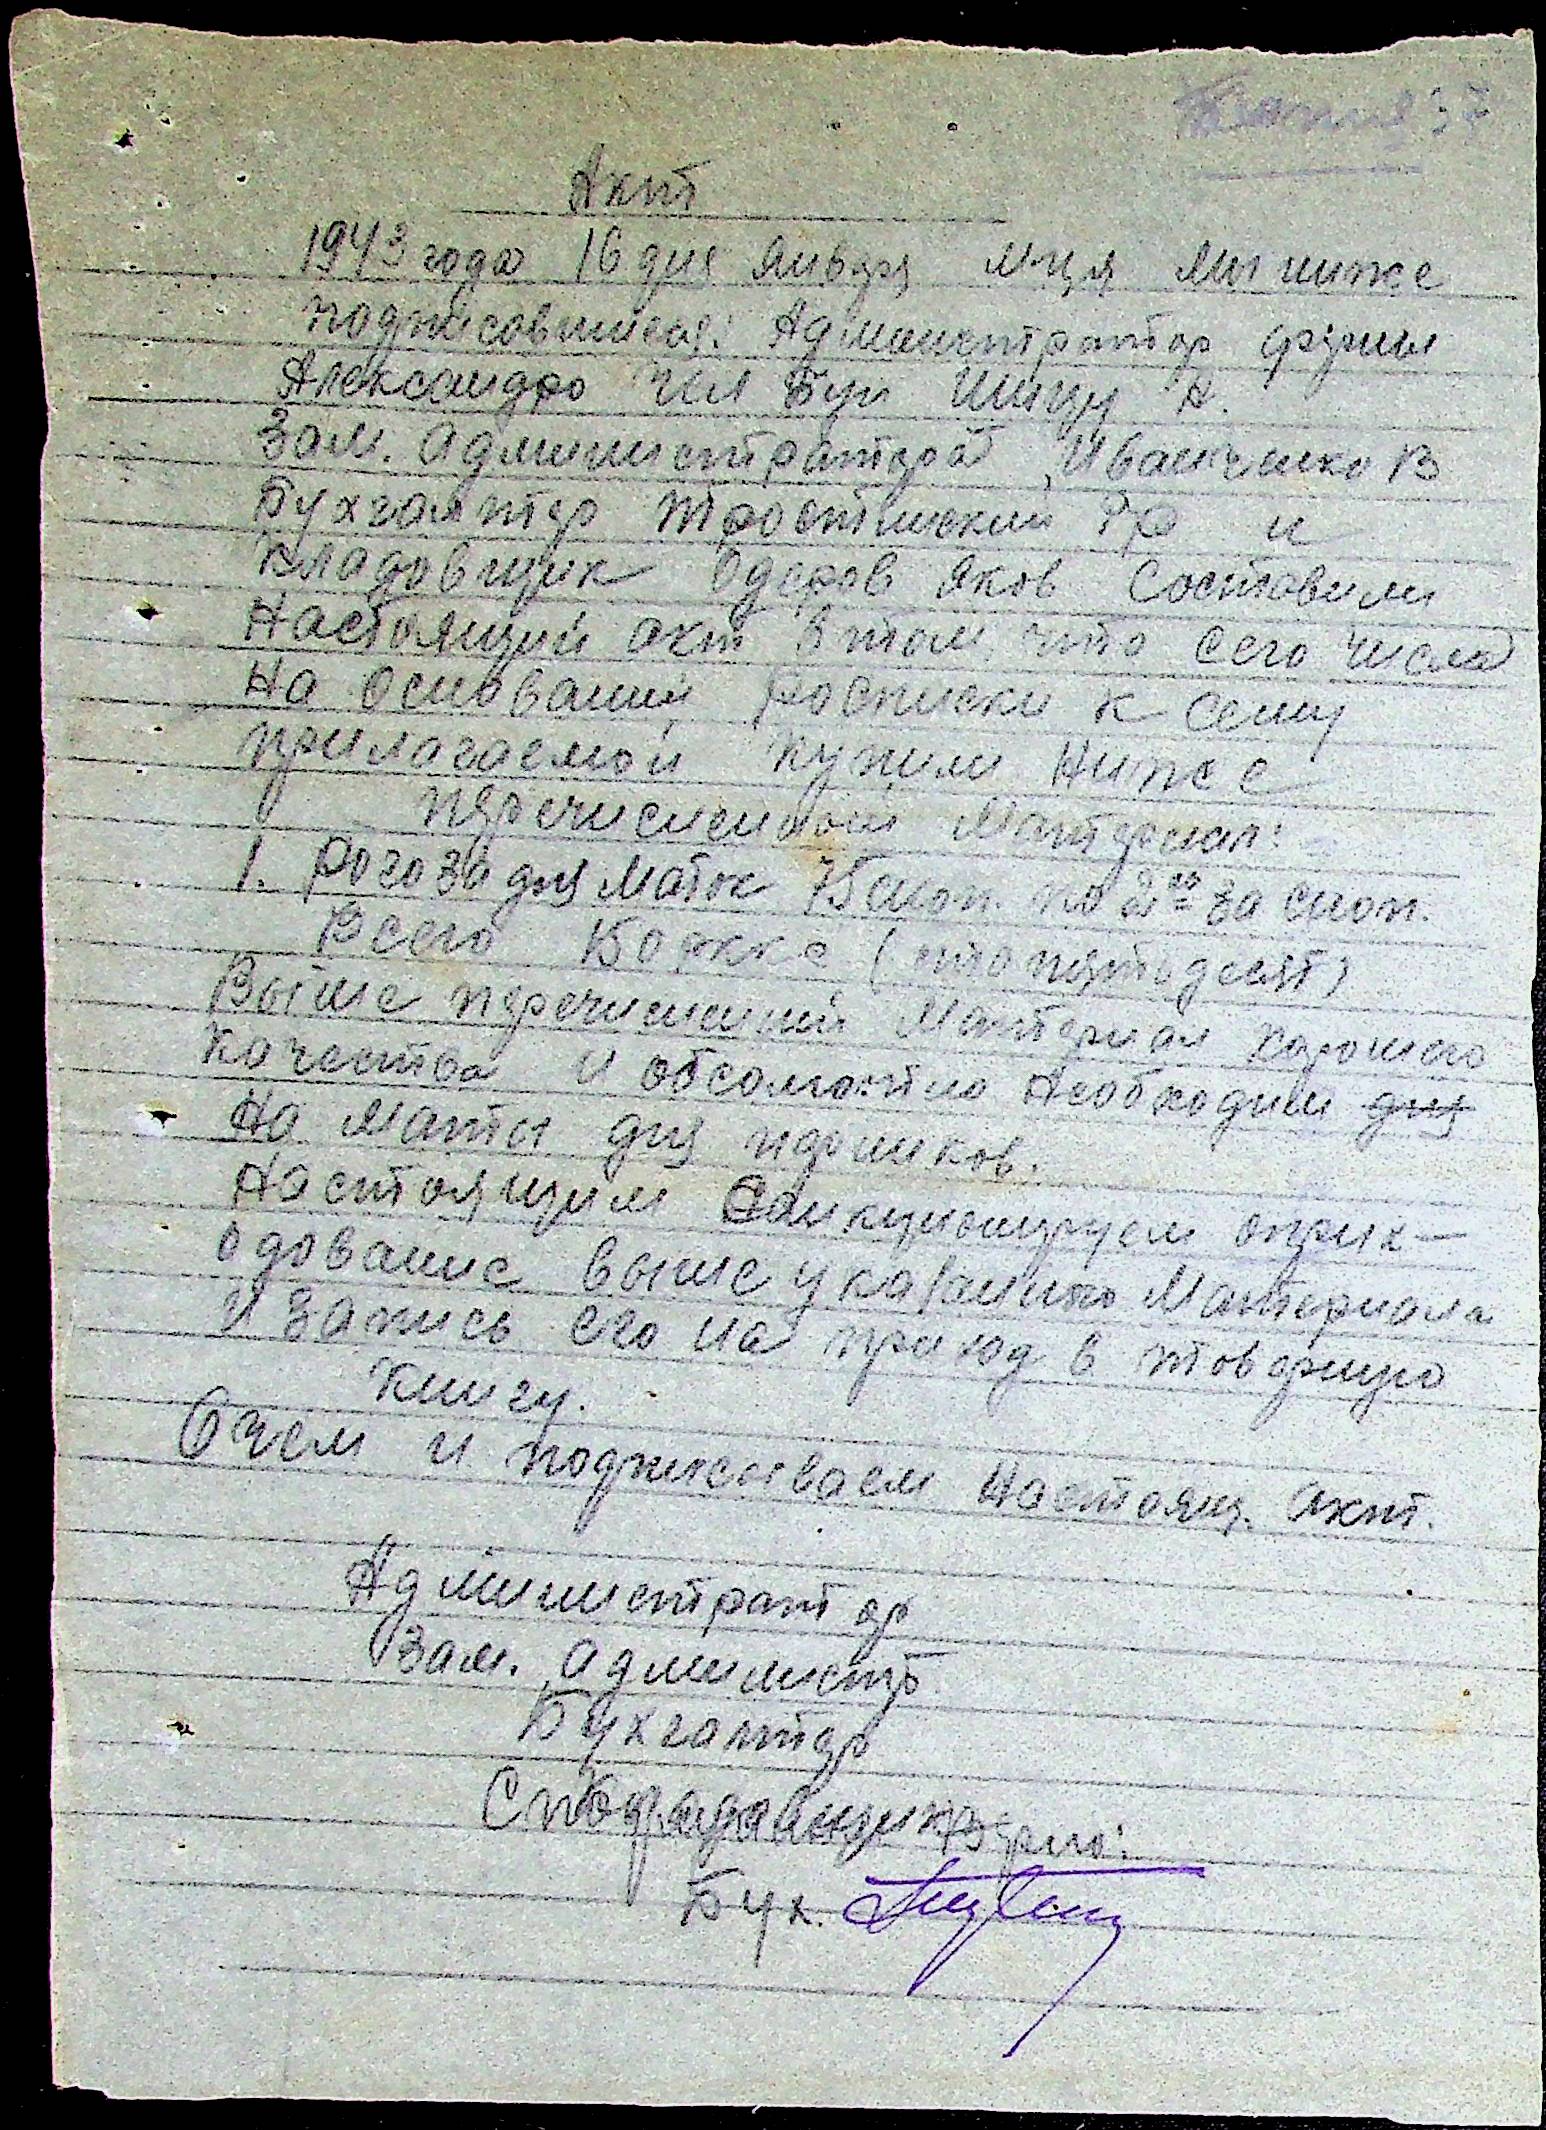 Копия 37
Акт
1943 года 16 дня январ м-ця мы ниже
подписавшиеся: Администратор фермы
Александро Чел Бун Шицу А.
Зам. Администратора Иванченко В
Бухгалтер Тростинский ГФ и
Кладовщик Одеров Яков составили
Настоящий акт в том, что сего числа
На основании расписки к сему
прилагаемой купили ниже
перечисленный материал:
1. Рогоза для маток 75 сноп. по 2°° за сноп.
Всего 150 ркке (сто пятьдесят)
Выше перечислений материал хорошего
качества и обсолютно необходим для
на маты для парников.
Настоящим санкционируем оприх-
одование выше указанного материала
и запись его на приход в товарную
книгу.
О чем и подписываем настоящ. акт.
Администратор
Зам. администр.
Бухгалтер
Кладовщик
С подлинным верно:
Бух.